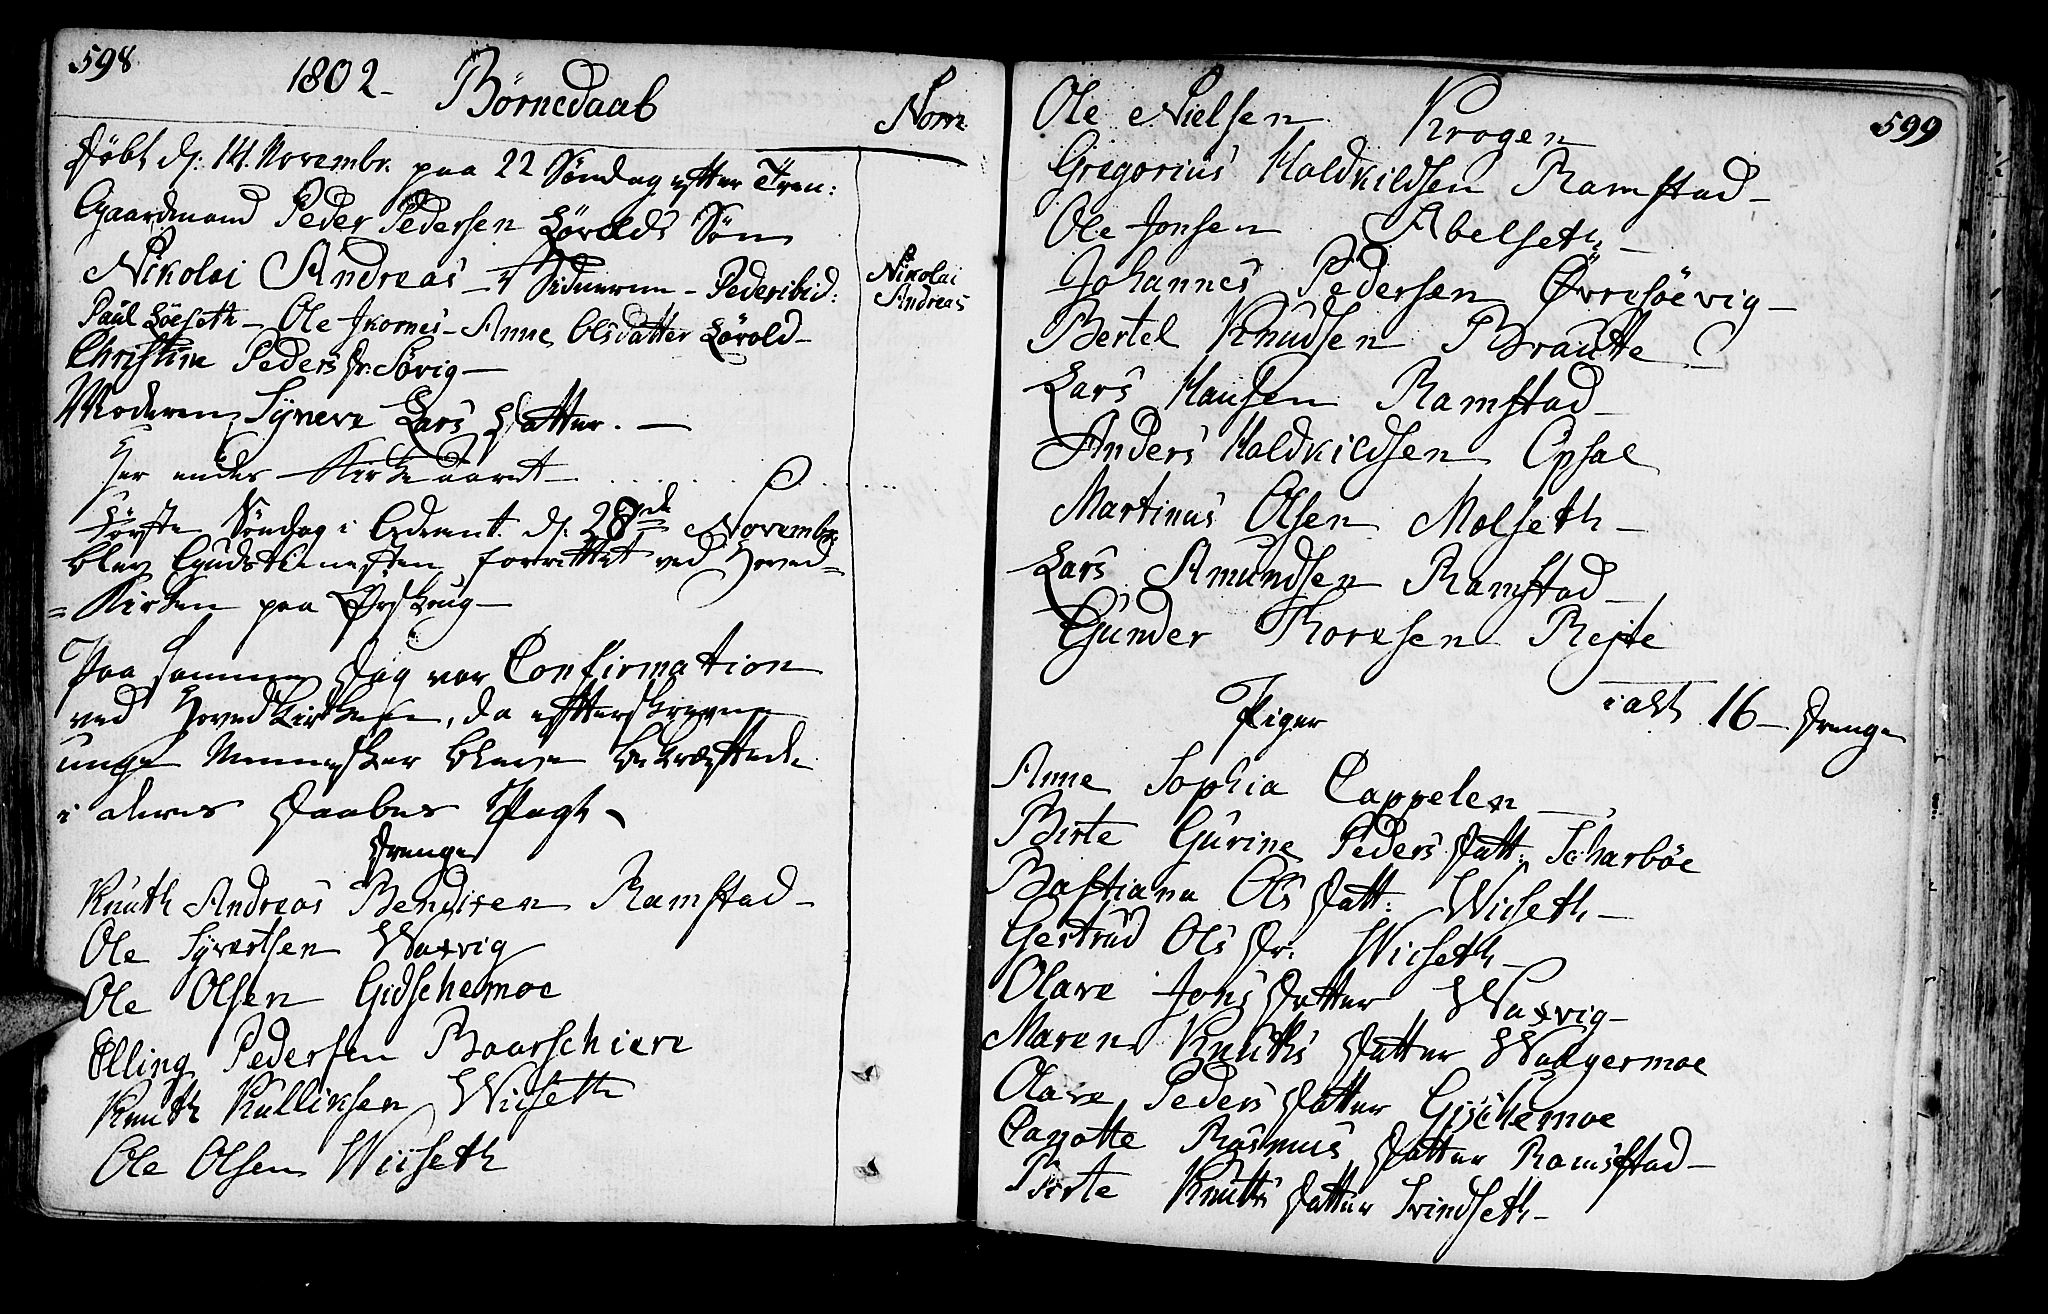 598
1802 - Börnedaab Nom
Döbt d: 14. Novembr. paa 22 Söndag efter Tren:
Gaardmand Peder Pedersen Lövolds Sön
Nikolai Andreas - Nikolai
Pedersbid: Andreas
Paul Löeseth - Ole Ikornes - Anne Olsdatter Lövold -
Christine Peders Dr. Sövig -
Moderen Syneve Lars Datter. -
Her endes Kirke aaret -
Förste Söndag i Advent d: 28de Novembr
blev Gudstienesten forrettet ved Hoved=
=Kirken paa Örskoug -
Paa samme Dag var Confirmation
ved Hovedkirken, da efterskrevne
unge Mennesker bleve bekræftede
i deres Daabes Pagt -
Drenge
Knuth Andreas Bendixen Ramstad -
Ole Syvertsen Waxvig
Ole Olsen Gidschemoe
Elling Pedersen Baarschiere
Knuth Kullixsen Wiiseth
Ole Olsen Wiiseth
599
Ole Nielsen Krogen
Gregorius Haldkildsen Ramstad -
Ole Jonsen Abelseth -
Johannes Pedersen Övresöevig -
Bertel Knudsen Braute -
Lars Hansen Ramstad -
Anders Haldkildsen Opsal
Martinus Olsen Molseth -
Lars Amundsen Ramstad -
Gunder Thoresen Rejte
i alt 16 - Drenge
Piger
Anne Sophia Cappelen -
Birte Gurine Peders Datt: Scharböe
Bastiana Ols Datt: Wiiseth -
Gertrud Ols Dr. Wiiseth -
Olave Jons Datter Waxvig -
Maren Knuths Datter Wadgermoe
Olave Peders Datter Gischemoe
Rasmus Datter Ramstad -
Birte Knuths Datter Svindseth -